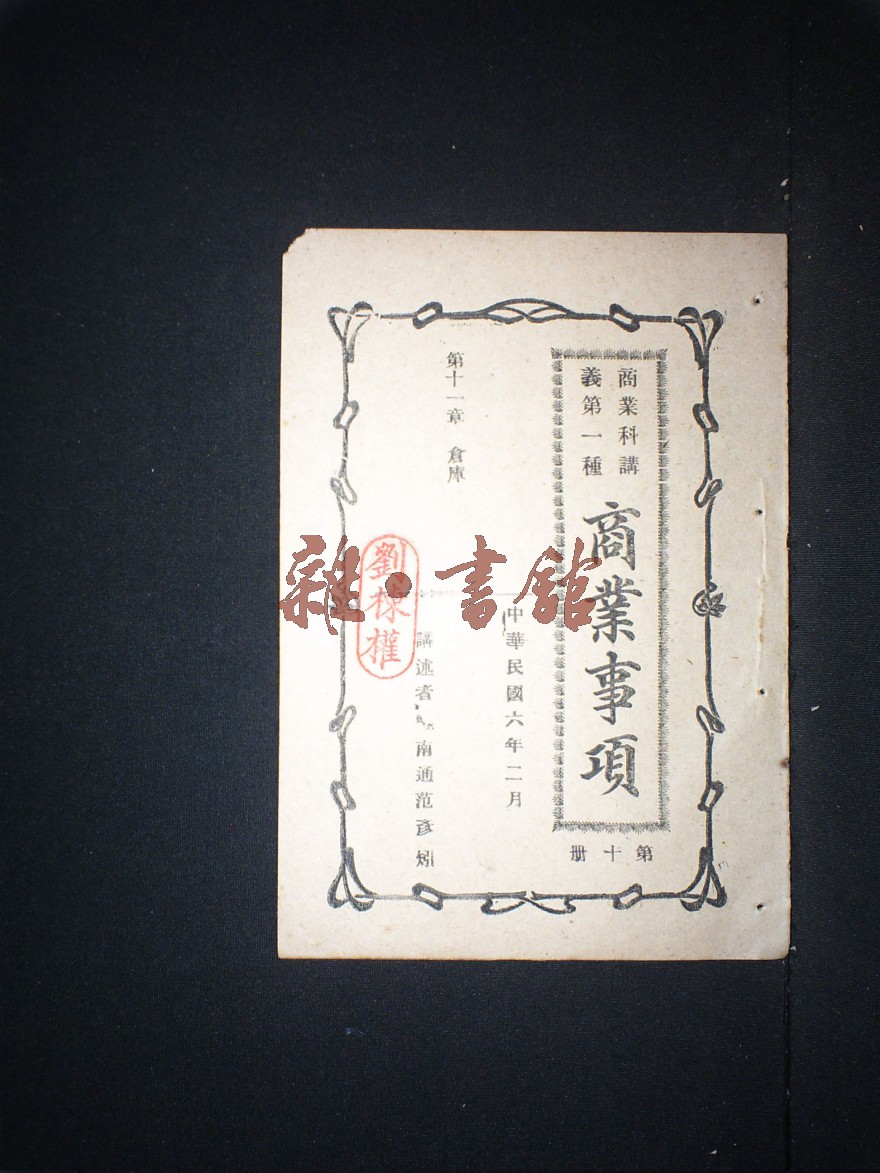 商業科講
義第一種
商業事項
第十册
中華民國六年二月
第十一章 倉庫
講述者 南通范彥矧
劉棟權
雜·書館